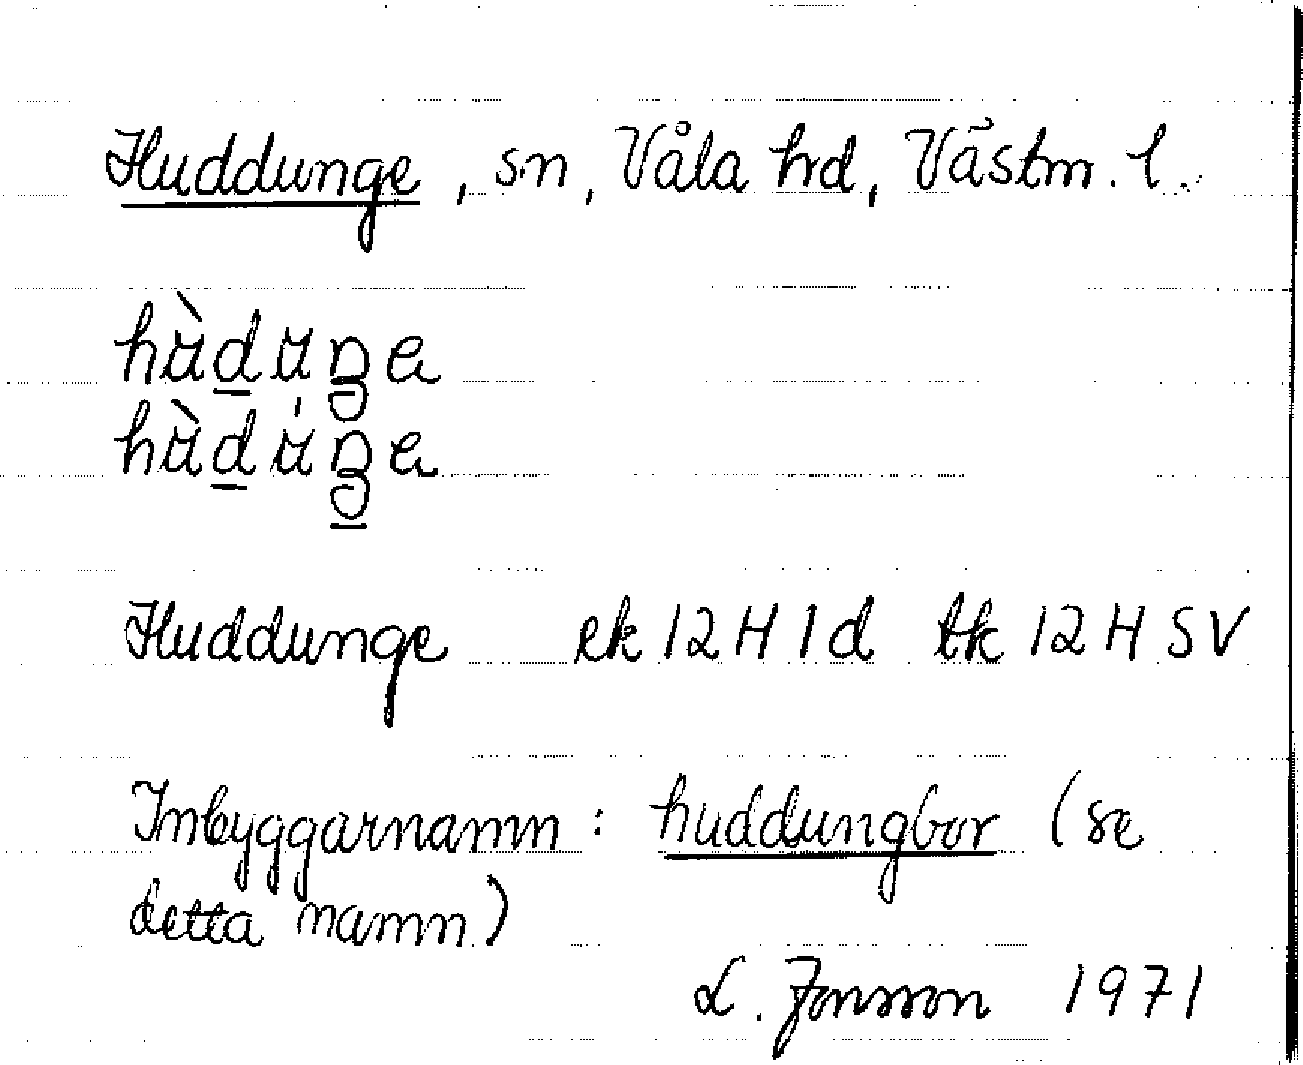 Huddunge, sn, Våla hd, Västm. l.
hùduŋe
hùdúŋe
Huddunge ek 12 H 1d tk 12 H SV
Inbyggarnamn: huddungbor (se
detta namn)
L. Jonsson 1971